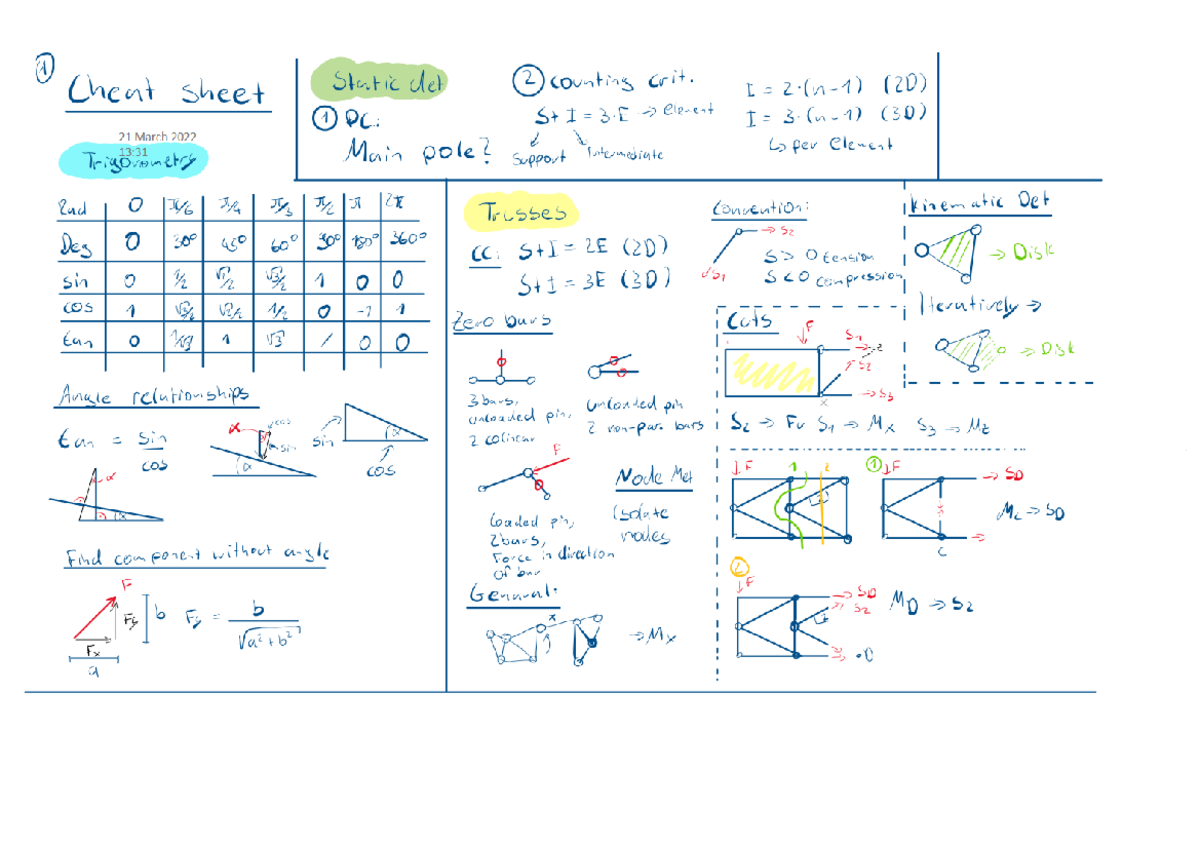 1
Cheat sheet
21 March 2022
13:31
Trigonometry
Rad 0 π/6 π/4 π/3 π/2 π 2π
Deg 0 30° 45° 60° 90° 180° 360°
sin 0 1/2 √2/2 √3/2 1 0 0
cos 1 √3/2 √2/2 1/2 0 -1 1
tan 0 1/√3 1 √3 / 0 0
Angle relationships
tan = sin
cos
α cos sin α
sin α cos
α α
Find component without angle
F Fy Fx b a
Fy = b
√a²+b²
Static det
① PC:
Main pole?
② counting crit.
S+I = 3·E → Element
Support Intermediate
I = 2·(n-1) (2D)
I = 3·(n-1) (3D)
↳ per Element
Trusses
CC: S+I = 2E (2D)
S+I = 3E (3D)
Zero bars
0 0 0
3 bars,
unloaded pin,
2 colinear
unloaded pin
2 non-par. bars
F 0
loaded pin,
2 bars,
Force in direction
of bar
Node Met
Isolate
nodes
General:
x
→ Mx
Convention:
→ S2
S1
S > 0 tension
S < 0 compression
Kinematic Det
→ Disk
Iteratively →
→ Disk
Cuts
F S1 z
S2
→ S3
x
S2 → Fv S1 → Mx S3 → Mz
↓F 1 2
① ↓F → SD
C
Mc → SD
2
↓F
→ SD
S2
•D
MD → S2